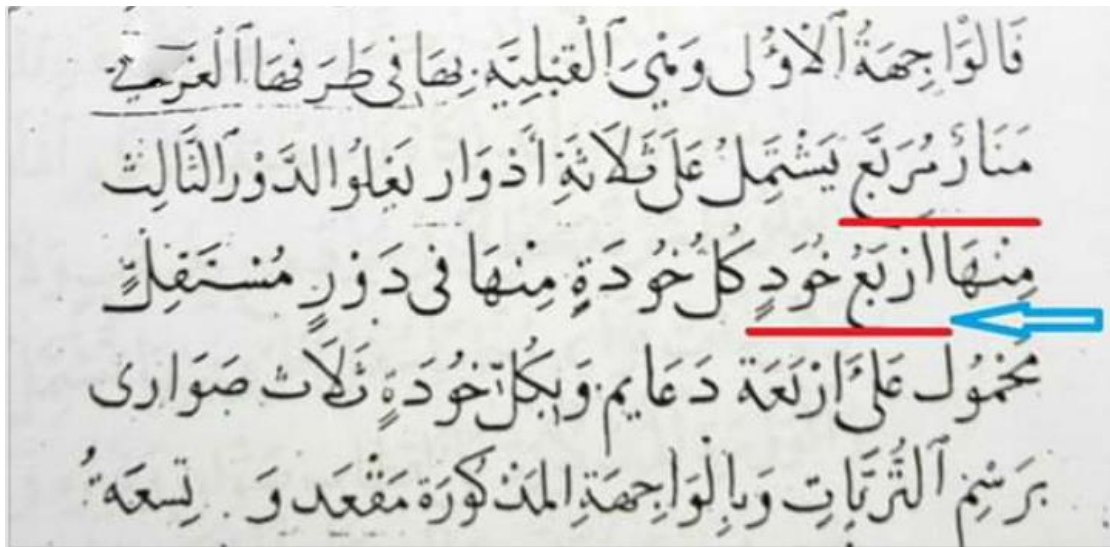 فَالْوَاجِهَةُ ٱلْأُولى وَهِيَ ٱلْقِبْلِيَّة بِهَا فِى طَرَفِهَا ٱلْغَرْبِي
مَنَارٌ مُرَبَّع يَشْتَمِلُ عَلَى ثَلَاثَةِ أَدْوَار يَعْلُو الدَّوْرَ الثَّالِث
مِنْهَا أَرْبَعُ خُوَدٍ كُلُّ خُودَةٍ مِنْهَا فِى دَوْرٍ مُسْتَقِلٍّ
مَحْمُول عَلَى أَرْبَعَة دَعَايِم وَبِكُلِّ خُودَةٍ ثَلَاث صَوَارِى
بِرَسْمِ ٱلثُّرَيَّاتِ وَبِالْوَاجِهَةِ المَذْكُورَة مَقْعَد وَ تِسْعَةُ